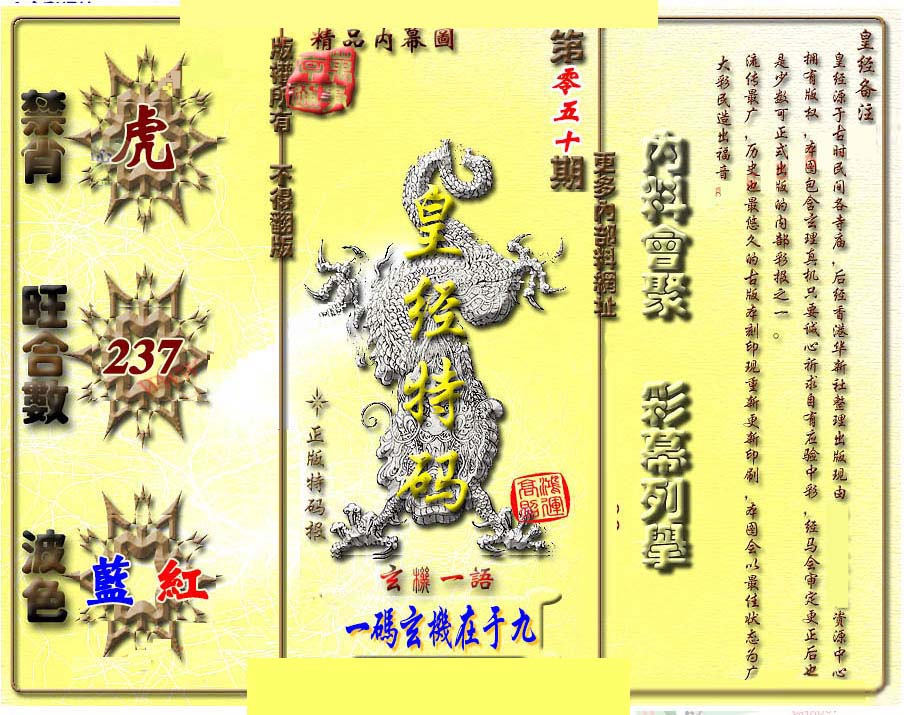 精品内幕圖
版權所有 不得翻版
第零五十期
更多內部料網址
禁肖
虎
旺合數
237
波色
藍 紅
皇经特码
正版特码报
鴻運高照
玄機一語
一碼玄機在于九
內料會聚 彩幕列舉
皇经备注
皇经源于古时民间各寺庙，后经香港华新社整理出版现由 资源中心
拥有版权，本图包含玄理真机只要诚心祈求自有应验中彩，经马会审定更正后也
是少数可正式出版的内部彩报之一。
流传最广，历史也最悠久的古版本刻印现重新更新印刷，本图会以最佳状态为广
大彩民造出福音